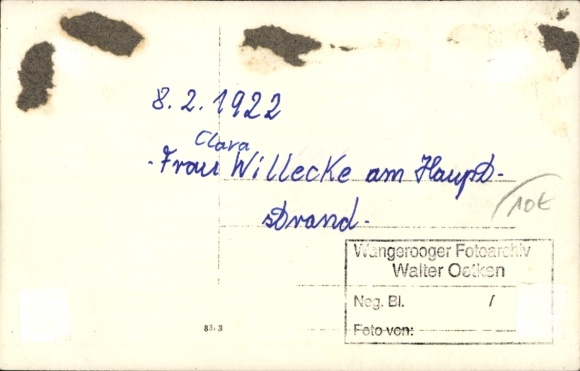 8.2.1922
Clara
Frau Willecke am Haupt-
strand.
10€
Wangerooger Fotoarchiv
Walter Oetken
Neg. Bl. /
Foto von: